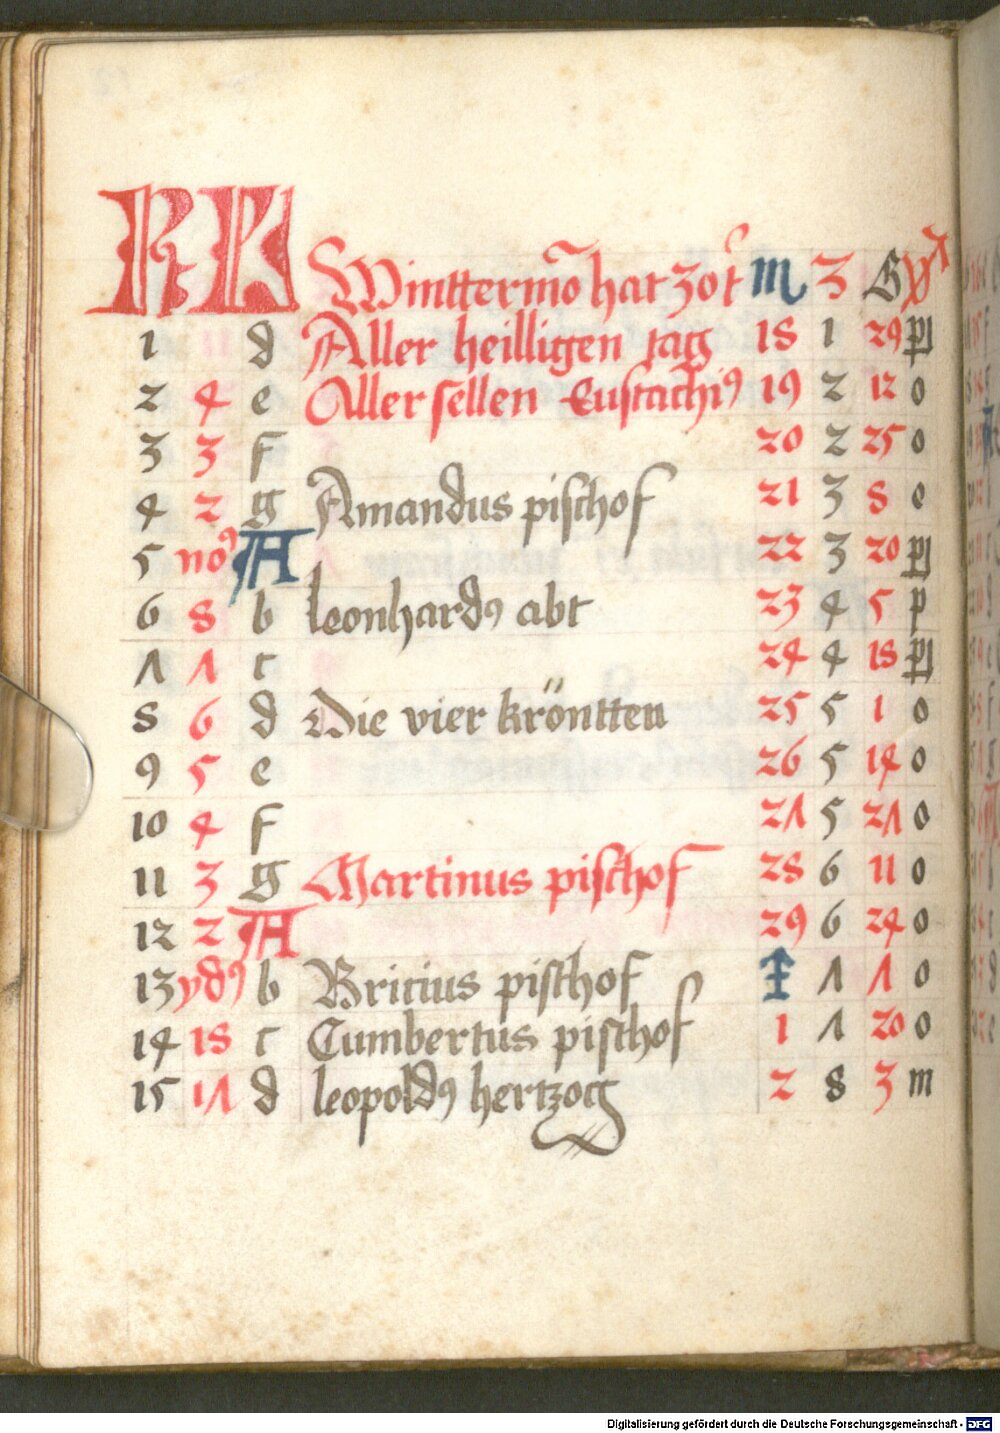 KL Winttermo hat 30 t m 3 G
1 d Aller heilligen tag 18 1 29 pl
2 4 e Aller sellen Eustachi9 19 2 12 o
3 3 f 20 2 25 o
4 2 g Amandus pischof 21 3 8 e
5 no9 A 22 3 20 pl
6 8 b leonhard9 abt 23 4 5 p
7 7 c 24 4 18 pl
8 6 d Die vier kröntten 25 5 1 o
9 5 e 26 5 14 o
10 4 f 27 5 27 o
11 3 g Martinus pischof 28 6 11 o
12 2 A 29 6 24 o
13 yd9 b Bricius pischof 7 7 o
14 18 c Cumbertus pischof 1 7 20 o
15 17 d leopold9 hertzog 2 8 3 m
Digitalisierung gefördert durch die Deutsche Forschungsgemeinschaft - DFG